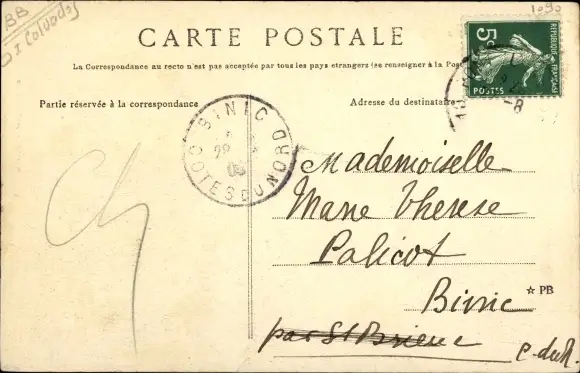 BB
(Calvados)
1090
CARTE POSTALE
La Correspondance au recto n'est pas acceptée par tous les pays étrangers (se renseigner à la Post
Partie réservée à la correspondance
Adresse du destinataire
5c
REPUBLIQUE FRANÇAISE
POSTES
BINIC
COTES DU NORD
Mademoiselle
Marie Therese
Palicot
Binic
PB
par St Brieuc
C. du N.